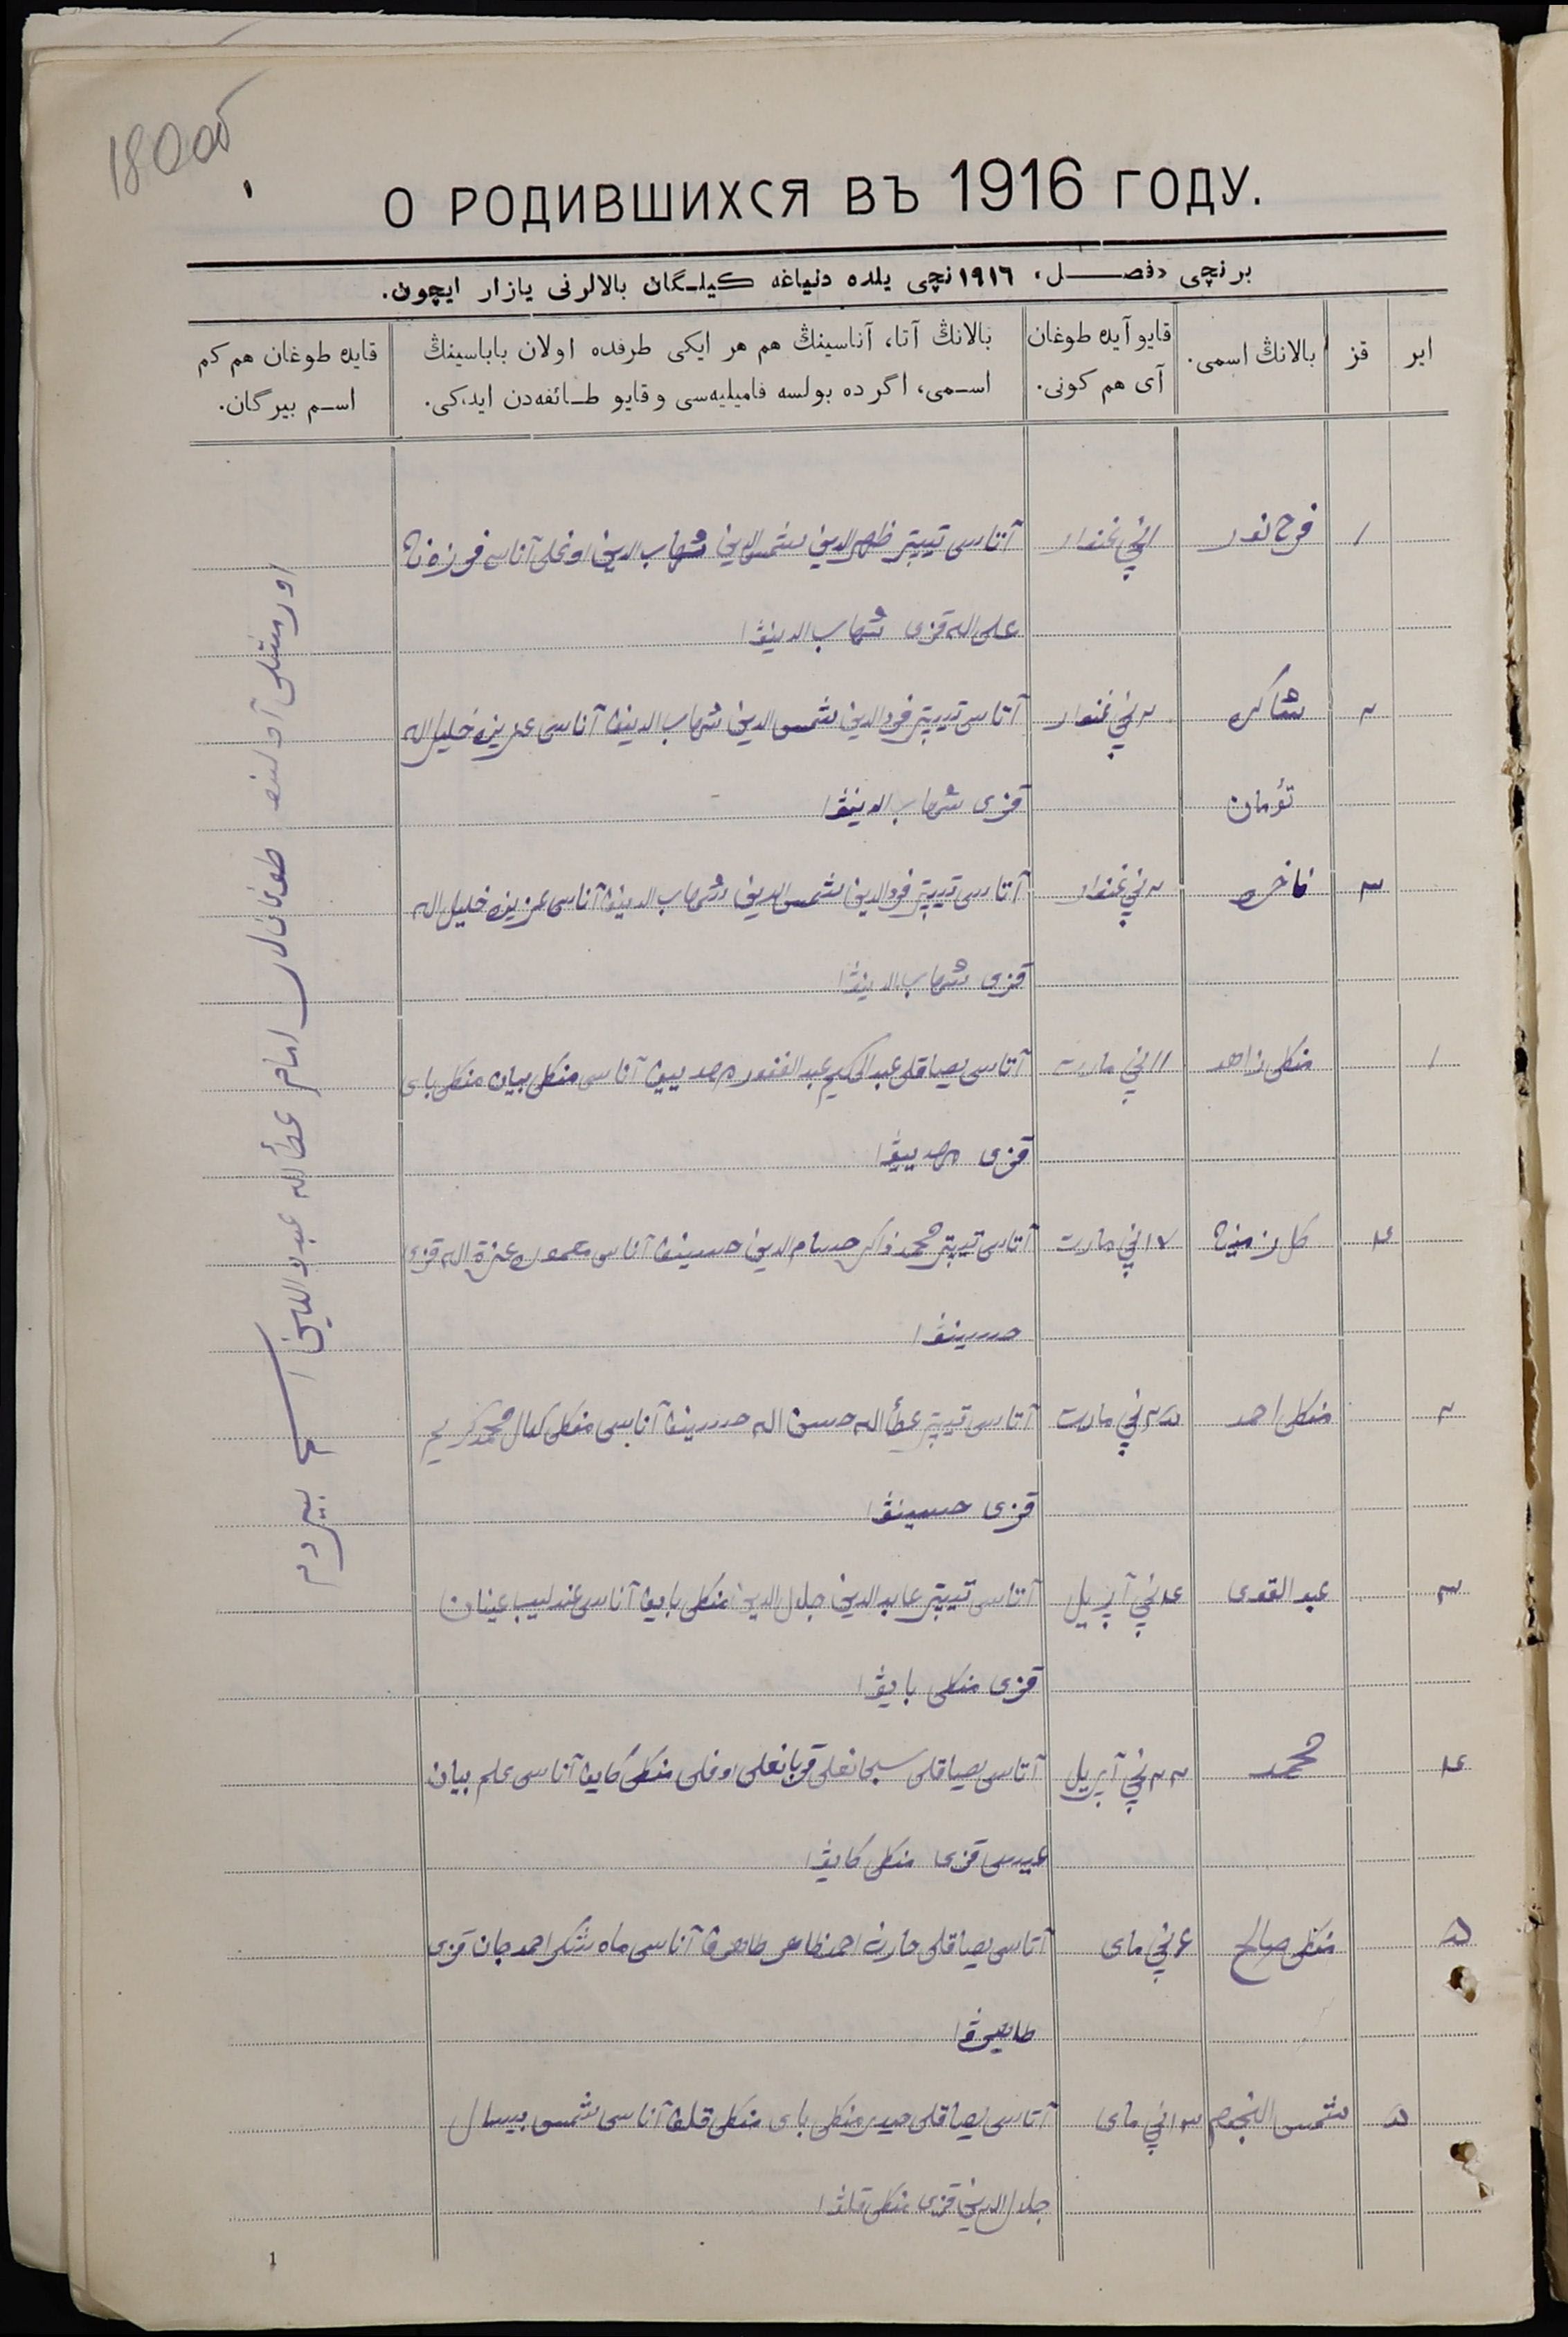 180об
О РОДИВШИХСЯ ВЪ 1916 ГОДУ.
برنچی «فصل» ١٩١٦نچی یلده دنیاغه کیلگان بالالرنی یازار ایچون.
ایر
قز
بالانڭ اسمی.
قایو آیده طوغان
آی هم کونی.
بالانڭ آتا، آناسینڭ هم هر ایکی طرفده اولان باباسینڭ
اسمی، اگرده بولسه فامیلیه‌سی وقایو طائفه‌دن ایدکی.
قایده طوغان هم کم
اسم بیرگان.
١ ١نچی غنوار آتاسی تیپتر ظهرالدین شمس‌الدین شهاب الدین اوغلی آناسی
قزی شهاب الدینوا
٢ شاکره ٢نچی غنوار آتاسی تیپتر شمس‌الدین شهاب الدینف آناسی عزیزه خلیل الله
تؤمان قزی شهاب الدینوا
٣ فاخره ٢نچی غنوار آتاسی تیپتر شمس‌الدین شهاب الدینف آناسی عزیزه خلیل الله
قزی شهاب الدینوا
١ منکلی زاهد ١١نچی مارت آتاسی یصاقلی عبدالحکیم عبدالغفور آناسی منکلی بیان منکلی بای
قزی
٤ ١٧نچی مارت آتاسی تیپتر محمد ذاکر حسام الدین حسینف آناسی معموره عزة الله قزی
حسینوا
٢ منکلی احمد ٢٥نچی مارت آتاسی تیپتر عطأ الله حسن الله حسینف آناسی منکلی کمال محمد کریم
قزی حسینوا
٣ عبد القوی ٤نچی آپریل آتاسی تیپتر عابد الدین جلال الدین منکلی بایف آناسی عندلیب
قزی منکلی بایوا
٤ محمد ٢٢نچی آپریل آتاسی یصاقلی سبحانغلی قربانغلی اوغلی منکلی کایف آناسی علم بیان
عیسی قزی منکلی کایوا
٥ منکلی صالح نچی مای آتاسی یصاقلی حارث احمد ظاهر طاهرف آناسی ماه شکر احمد جان قزی
طاهروا
٥ شمس النجم ١٣نچی مای آتاسی یصاقلی حیدر منکلی بای منکلی قلف آناسی شمس
جلال الدین قزی منکلی قلوا
اورشلی آولنده طوغانلر امام عطأ الله عبد الدین اسم بیردم
1